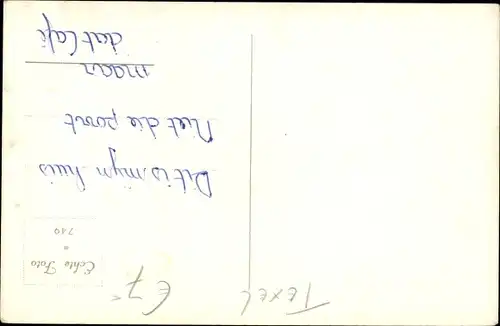 Dit is mijn huis
Niet die poort
maar
dat Café
Echte Foto
710
Texel
€ 7